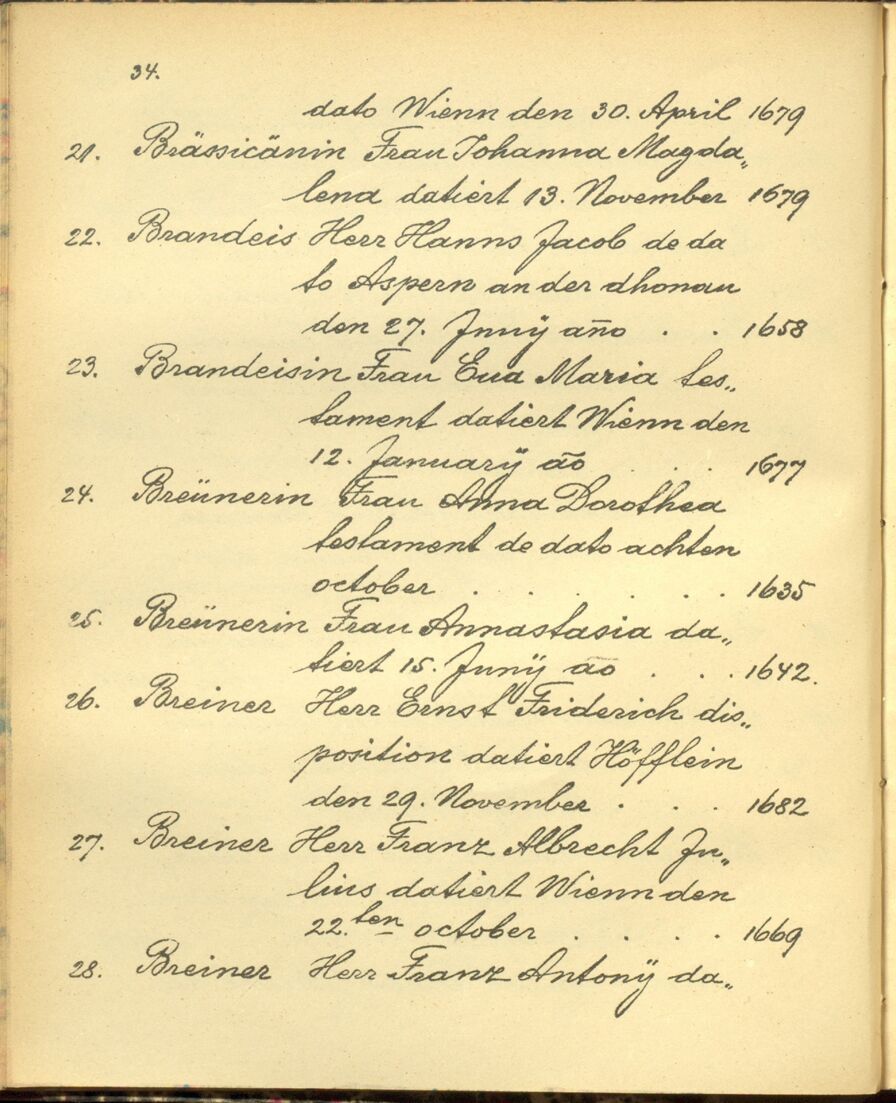 34.
dato Wienn den 30. April 1679
21. Brässicänin Frau Johanna Magda„
lena datiert 13. November 1679
22. Brandeis Herr Hanns Jacob de da
to Aspern an der dhonau
den 27. Junÿ año . . 1658
23. Brandeisin Frau Eua Maria tes„
tament datiert Wienn den
12. Januarÿ ão . . . 1677
24. Breünerin Frau Anna Dorothea
testament de dato achten
october . . . . . . 1635
25. Breünerin Frau Annastasia da„
tiert 15. Junÿ ao . . . 1642.
26. Breiner Herr Ernst Friderich dis„
position datiert Höfflein
den 29. November . . . 1682
27. Breiner Herr Franz Albrecht Ju„
lius datiert Wienn den
22.ten october . . . . 1669
28. Breiner Herr Franz Antonÿ da„